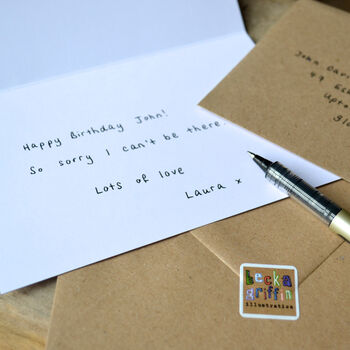 Happy Birthday John!
So sorry I can't be there.
Lots of love
Laura x
John
becka
griffin
illustration